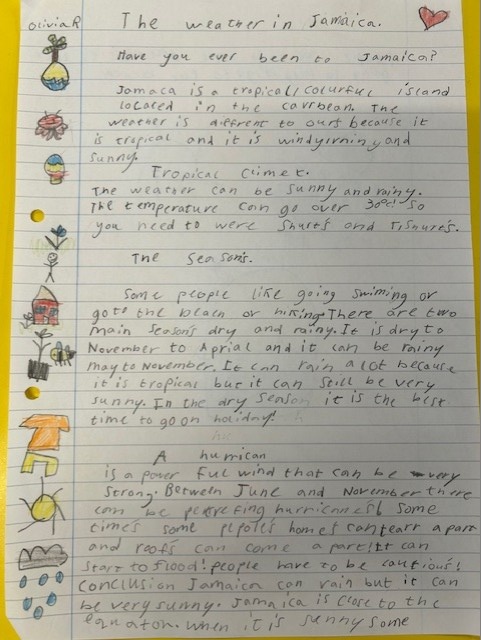 Olivia R
The weather in Jamaica.
Have you ever been to Jamaica?
Jamaca is a tropical/colurful island
located in the carrbean. The
weather is diffrent to ours because it
is tropical and it is windy,rniny and
sunny.
Tropical climet.
The weather can be sunny and rainy.
The temperature can go over 30°c! So
you need to were shurts and Tishurts.
The Season's.
Some people like going swiming or
go to the beach or hiking. There are two
main season's dry and rainy. It is dry to
November to Aprial and it can be rainy
may to November. It can rain a lot because
it is tropical but it can still be very
sunny. In the dry season it is the best
time to go on holiday!
A hurrican
is a power ful wind that can be very
strong. Between June and November there
can be hurricanes! Some
times some peple's homes can tear a part
and roofs can come a part! It can
start to flood! people have to be cautious!
Conclusion Jamaica can rain but it can
be very sunny. Jamaica is close to the
equator. when it is sunny some